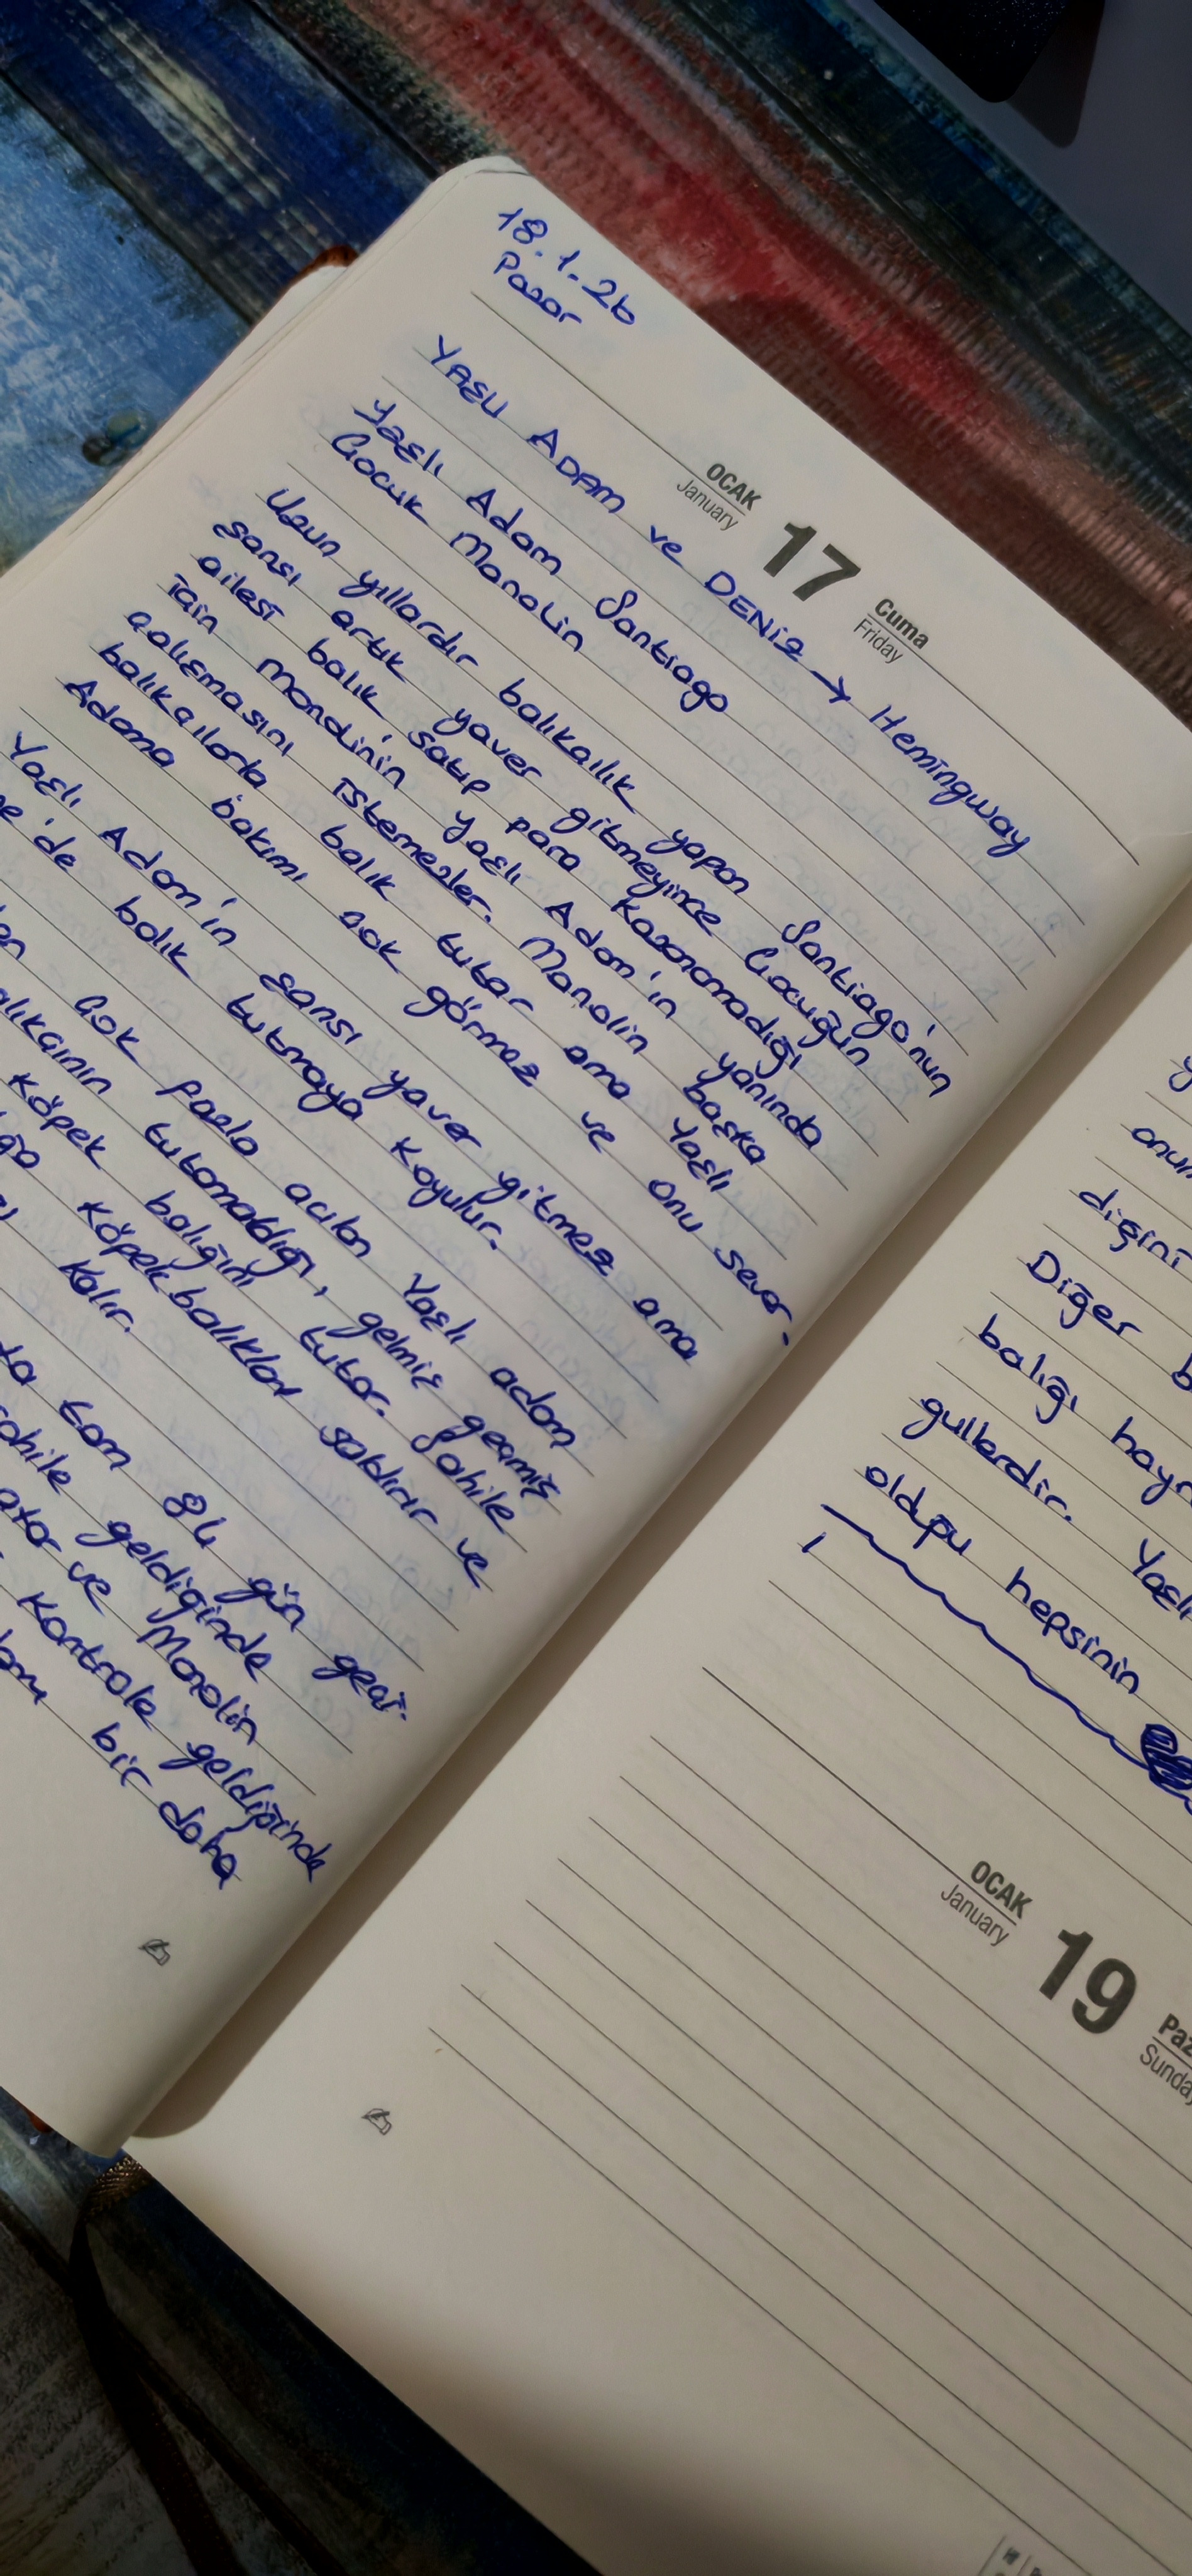 18.1.26
Pazar
OCAK
January
17
Cuma
Friday
YAŞLI ADAM ve DENİZ → Hemingway
Yaşlı Adam Santiago
Çocuk Manolin
Uzun yıllardır balıkçılık yapan Santiago'nun
şansı artık yaver gitmeyince Çocuğun
ailesi balık satıp para kazanamadığı
için Manolinin Yaşlı Adam'ın yanında
çalışmasını istemezler. Manolin başka
balıkçılarla balık tutar ama Yaşlı
Adama bakımı çok görmez ve onu sever.
Yaşlı Adam'ın şansı yaver gitmez ama
'de balık tutmaya koyulur.
Çok fazla açılan Yaşlı adam
tutamadığı, gelmiş geçmiş
Köpek balığını tutar. Sahile
Köpekbalıkları saldırır ve
kalır.
tam 84 gün geçi-
sahile geldiğinde
ve Manolin
kontrole geldiğinde
bir daha
diğini
Diğer
balığı
gullerdir. Yaşlı
olduğu hepsinin
OCAK
January
19
Sunday